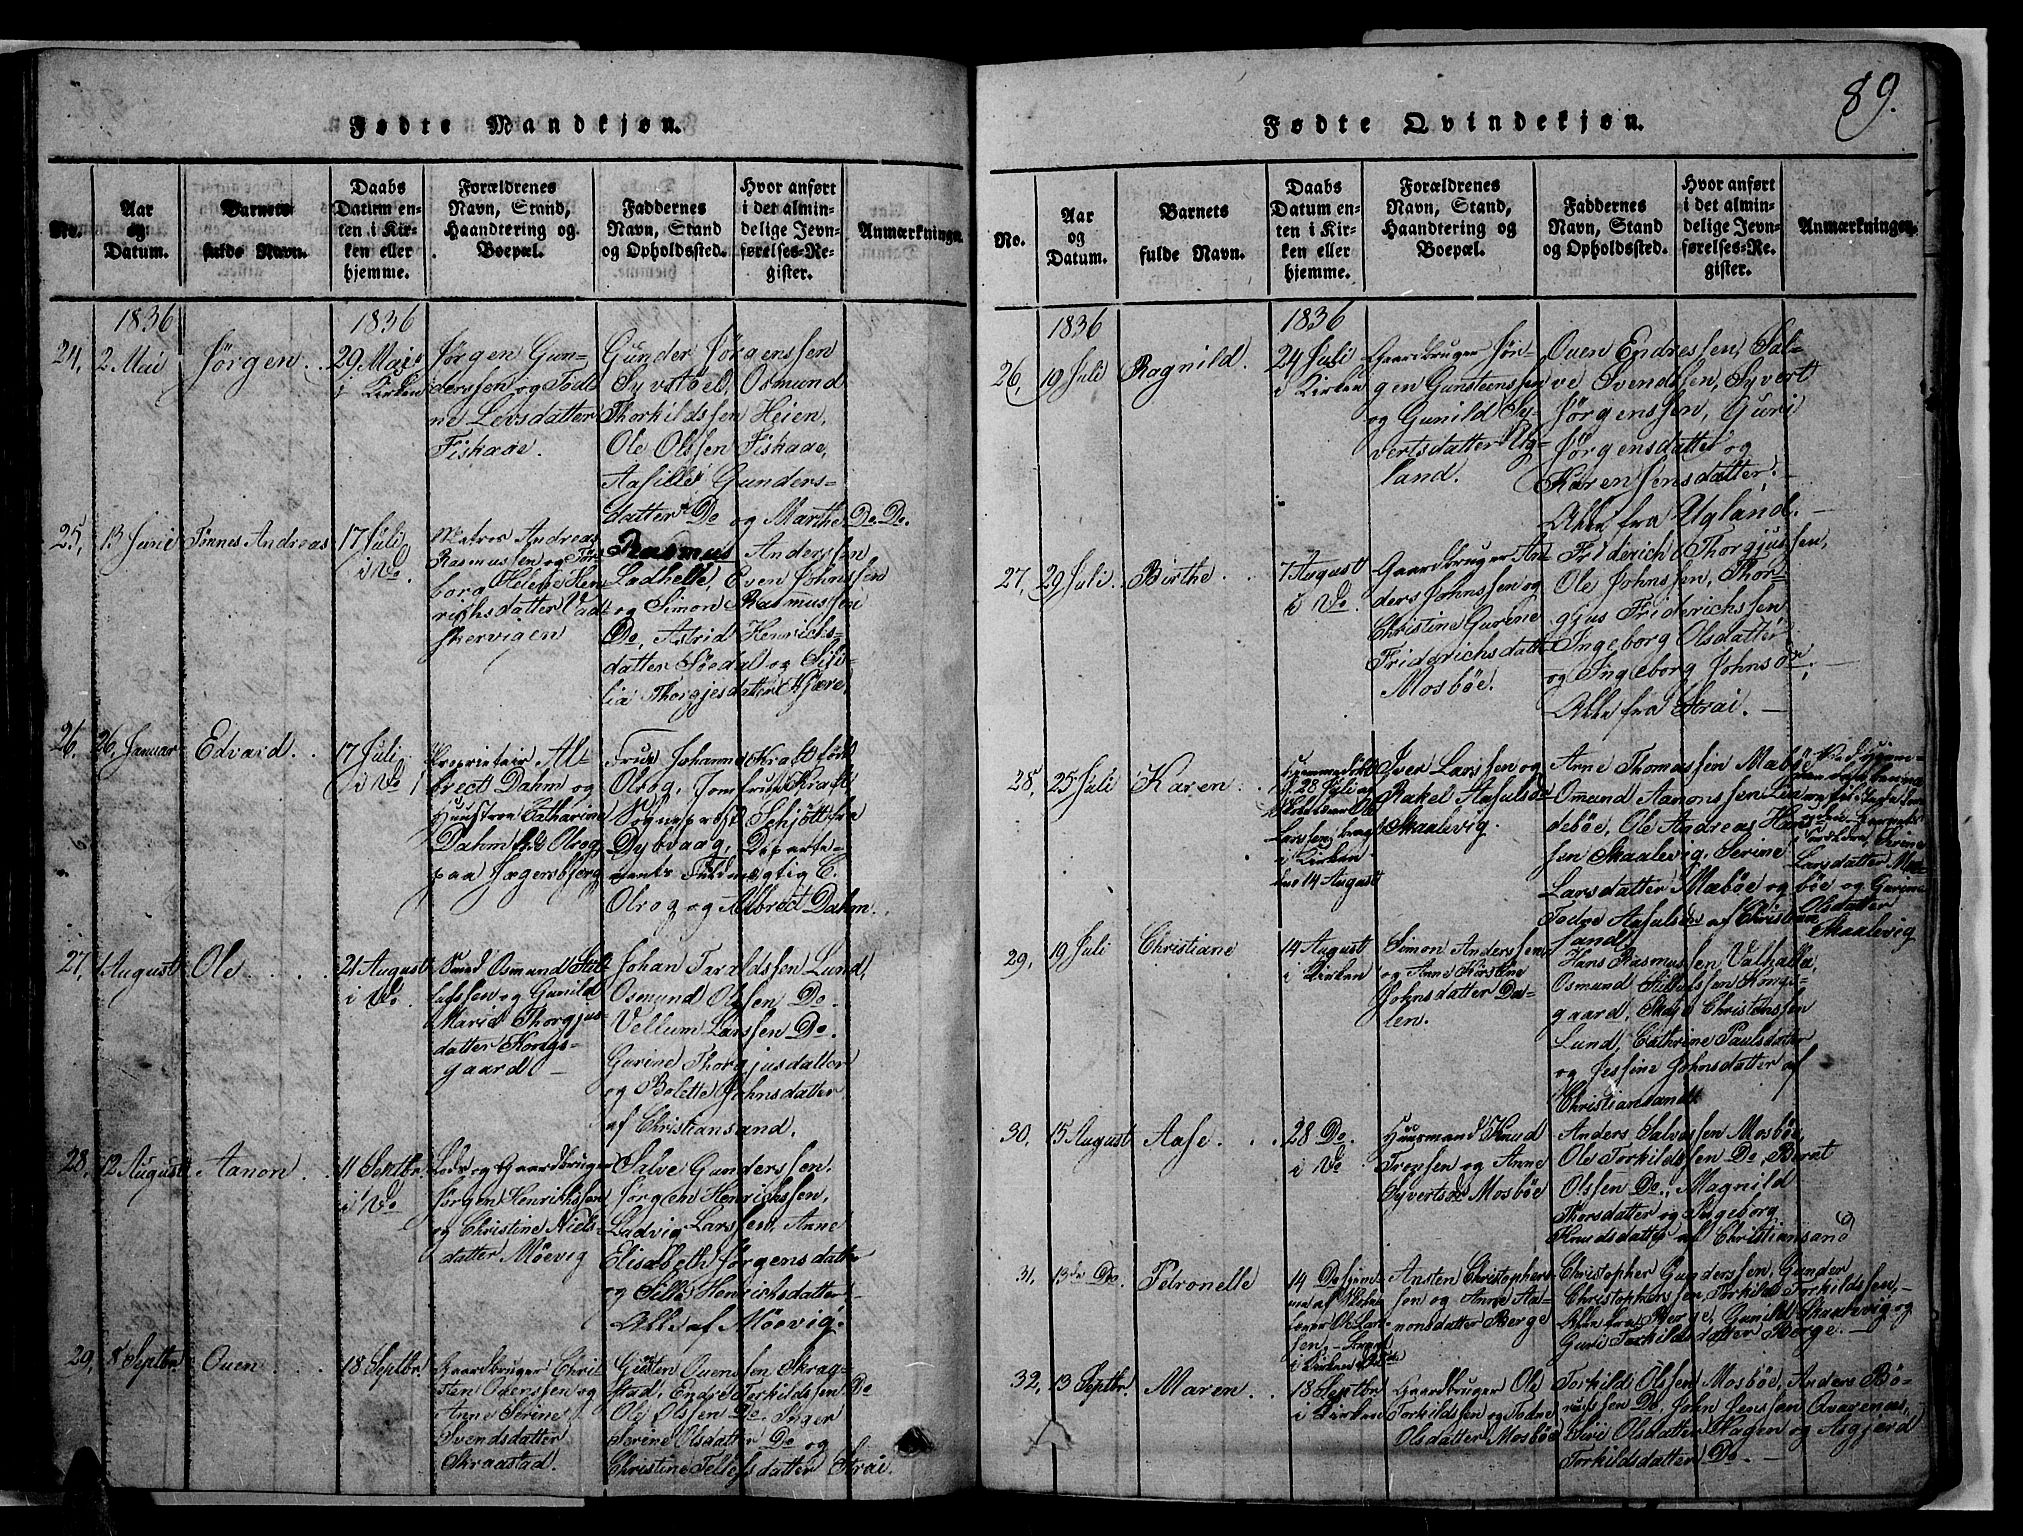 89.
Fødte Mandkjøn.
No.
Aar
og
Datum.
Barnets
fulde Navn.
Daabs
Datum en-
ten i Kir-
ken eller
hjemme.
Forældrenes
Navn, Stand,
Haandtering og
Boepæl.
Faddernes
Navn, Stand
og Opholdssted.
Hvor anført
i det almin-
delige Jevn-
førelses-Re-
gister.
Anmærkninger.
1836
1836
24,
2 Mai
Jørgen
29 Mai
i Kirken
Jørgen Gun-
derssen og Todi-
ne Levsdatter
Fiskaae.
Gunder Jørgenssen
Syvstöel, Osmund
Thorkildssen Heien,
Ole Olssen Fiskaae,
Aasille Gunders-
datter Do og Marthe Do. Do.
25,
13 Junii
Tønnes Andreas
17 Juli
i Do.
Matros Andreas
Rasmussen og Tor-
borg Helene Hen-
richsdatter Vad-
skervigen
Rasmus Anderssen
Ladhelle, Even Johnssen
og Simon Rasmussen
Do, Astrid Henrichs-
datter Söedal og Sisi-
lia Thorgjesdatter Kjære.
26,
26 Januar
Edvard.
17 Juli
i Do
Proprietair Al-
brect Dahm og
Huustroe Catharine
Dahm fød Olrog
paa Jægersbjerg
Frue Johanne Kraft født
Olrog, Jomfrue Kraft
Sogneprest Schjött fra
Dybvaag, Departe-
ments Fuldmægtig C.
Olrog og Albrect Dahm.
27,
1 August
Ole
21 August
i Do.
Smed Osmund
og Gunild
Marie Thorgjus-
datter Kongs-
gaard
Johan Taraldssen Lund,
Osmund Olssen Do.
Vellum Larssen Do.
Gurine Thorgjusdatter
og Bolette Johnsdatter
af Christiansand.
28,
12 August
Aanon
11 Septbr.
i Do
Lods og Gaardbruger
Jørgen Henrichssen
og Christine Niels-
datter Möevig
Salve Gunderssen,
Jørgen Henrichssen,
Ludvig Larssen, Anne
Elisabeth Jørgensdatter
og Sille Henrichsdatter
Alle af Möevig.
29,
8 Septbr.
Ouen
18 Septbr.
Gaardbruger Chri-
sten Ouenssen og
Anne Serine
Svendsdatter
Skraastad.
Gusten Ouenssen Skrag-
stad, Endre Torkildssen Do
Ole Olssen Do. Inger
Serine Olsdatter Do og
Christine Tellefsdatter Strai.
Fødte Qvindekjøn.
No.
Aar
og
Datum.
Barnets
fulde Navn.
Daabs
Datum en-
ten i Kir-
ken eller
hjemme.
Forældrenes
Navn, Stand,
Haandtering og
Boepæl.
Faddernes
Navn, Stand
og Opholdssted.
Hvor anført
i det almin-
delige Jevn-
førelses-Re-
gister.
Anmærkninger.
1836
1836
26,
19 Juli
Ragnild.
24 Juli
i Kirken
Gaardbruger Jön-
gen Gunsteenssen
og Gunild Sy-
vertsdatter Ug-
land.
Ouen Endressen, Sal-
ve Svendssen, Syvert
Jørgenssen, Guri
Jørgensdatter og
Karen Jensdatter,
Alle fra Ugland.
27,
29 Juli.
Birthe
7 August
i Do.
Gaardbruger An-
ders Johnssen og
Christine Gurine
Friderichsdatter
Mosbøe.
Friderich Thorgjussen,
Ole Johnssen, Thor-
gjus Friderichssen
Ingeborg Olsdatter
og Ingeborg Johnsdr,
Alle fra Strai.
28,
25 Juli
Karen
Hjemmedöbt
d. 28 Juli af
Skolelærer Ole
Larssen, bragt
i Kirken
14 August
Iver Larssen og
Rakel Aasulsd
Skaalevig.
Anne Thomassen Mæbøe
Omund Aanonssen Lin-
debøe, Ole Andreas Han-
sen Skaalevig, Serine
Larsdatter Mæbøe og
Todne Aasulsd af Christian-
sand
Ved Hjemme-
daaben
Serine
Larsdatter Mæ-
bøe og Gurine
Olsdatter
Skaalevig
29,
19 Juli
Christiane
14 August
i Kirken
Simon Anderssen
og Anne Kirstine
Johnsdatter Da-
len.
Hans Rasmussen Valhalla,
Osmund Kongs-
gaard, Christenssen
Lund, Cathrine Paulsdatter
og Jessine Johnsdatter af
Christiansand
30,
15 August
Aase
28 Do.
i Do
Huusmand Knud
Tronsen og Anne
Syvertsd Mosbøe
Anders Salvessen Mosbøe,
Ole Torkildssen Do, Berat
Olssen Do., Magnild
Thorsdatter og Ingeborg
Knudsdatter af Christiansand
31,
13de Do.
Petronelle
14 Do hjem-
me af Skole-
lærer Ole Lars-
sen,
i Kirken
Ansten Christophers-
sen og Anne Aa-
nonsdatter Berge
Christopher Gunderssen, Gunder
Christopherssen, Torkild Torkildssen,
Alle fra Berge, Gunild Skaalevig og
Guri Torkildsdatter Berge.
32,
13 Septbr
Maren.
18 Septbr
i Kirken
Gaardbruger Ole
Torkildssen og Todne
Olsdatter Mosbøe
Torkild Olssen Mosbøe, Anders Bö-
Do, John Jenssen Qvarenæs,
Siri Olsdatter Hagen og Asgjerd
Torkildsdatter Do.